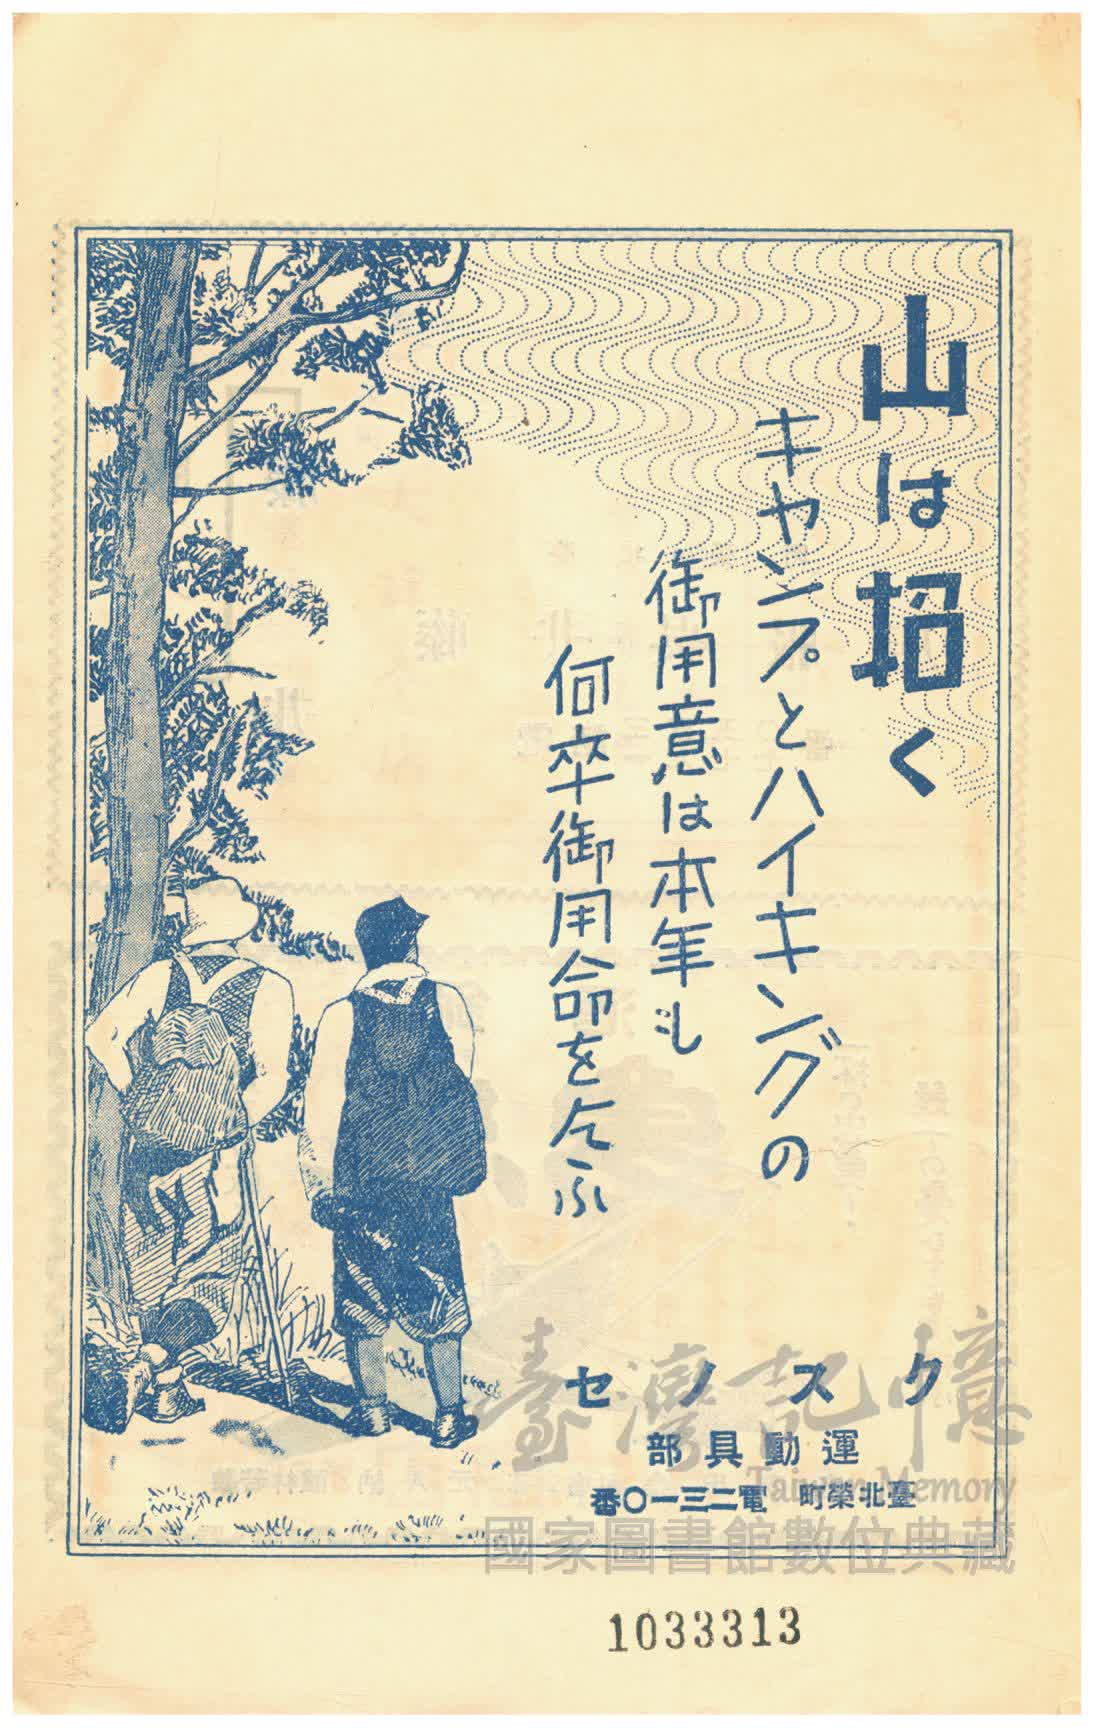 山は招く
キャンプとハイキングの
御用意は本年も
何卒御用命を乞ふ
クスノセ
運動具部
臺北榮町 電二三一〇番
臺灣記憶
Taiwan Memory
國家圖書館數位典藏
1033313